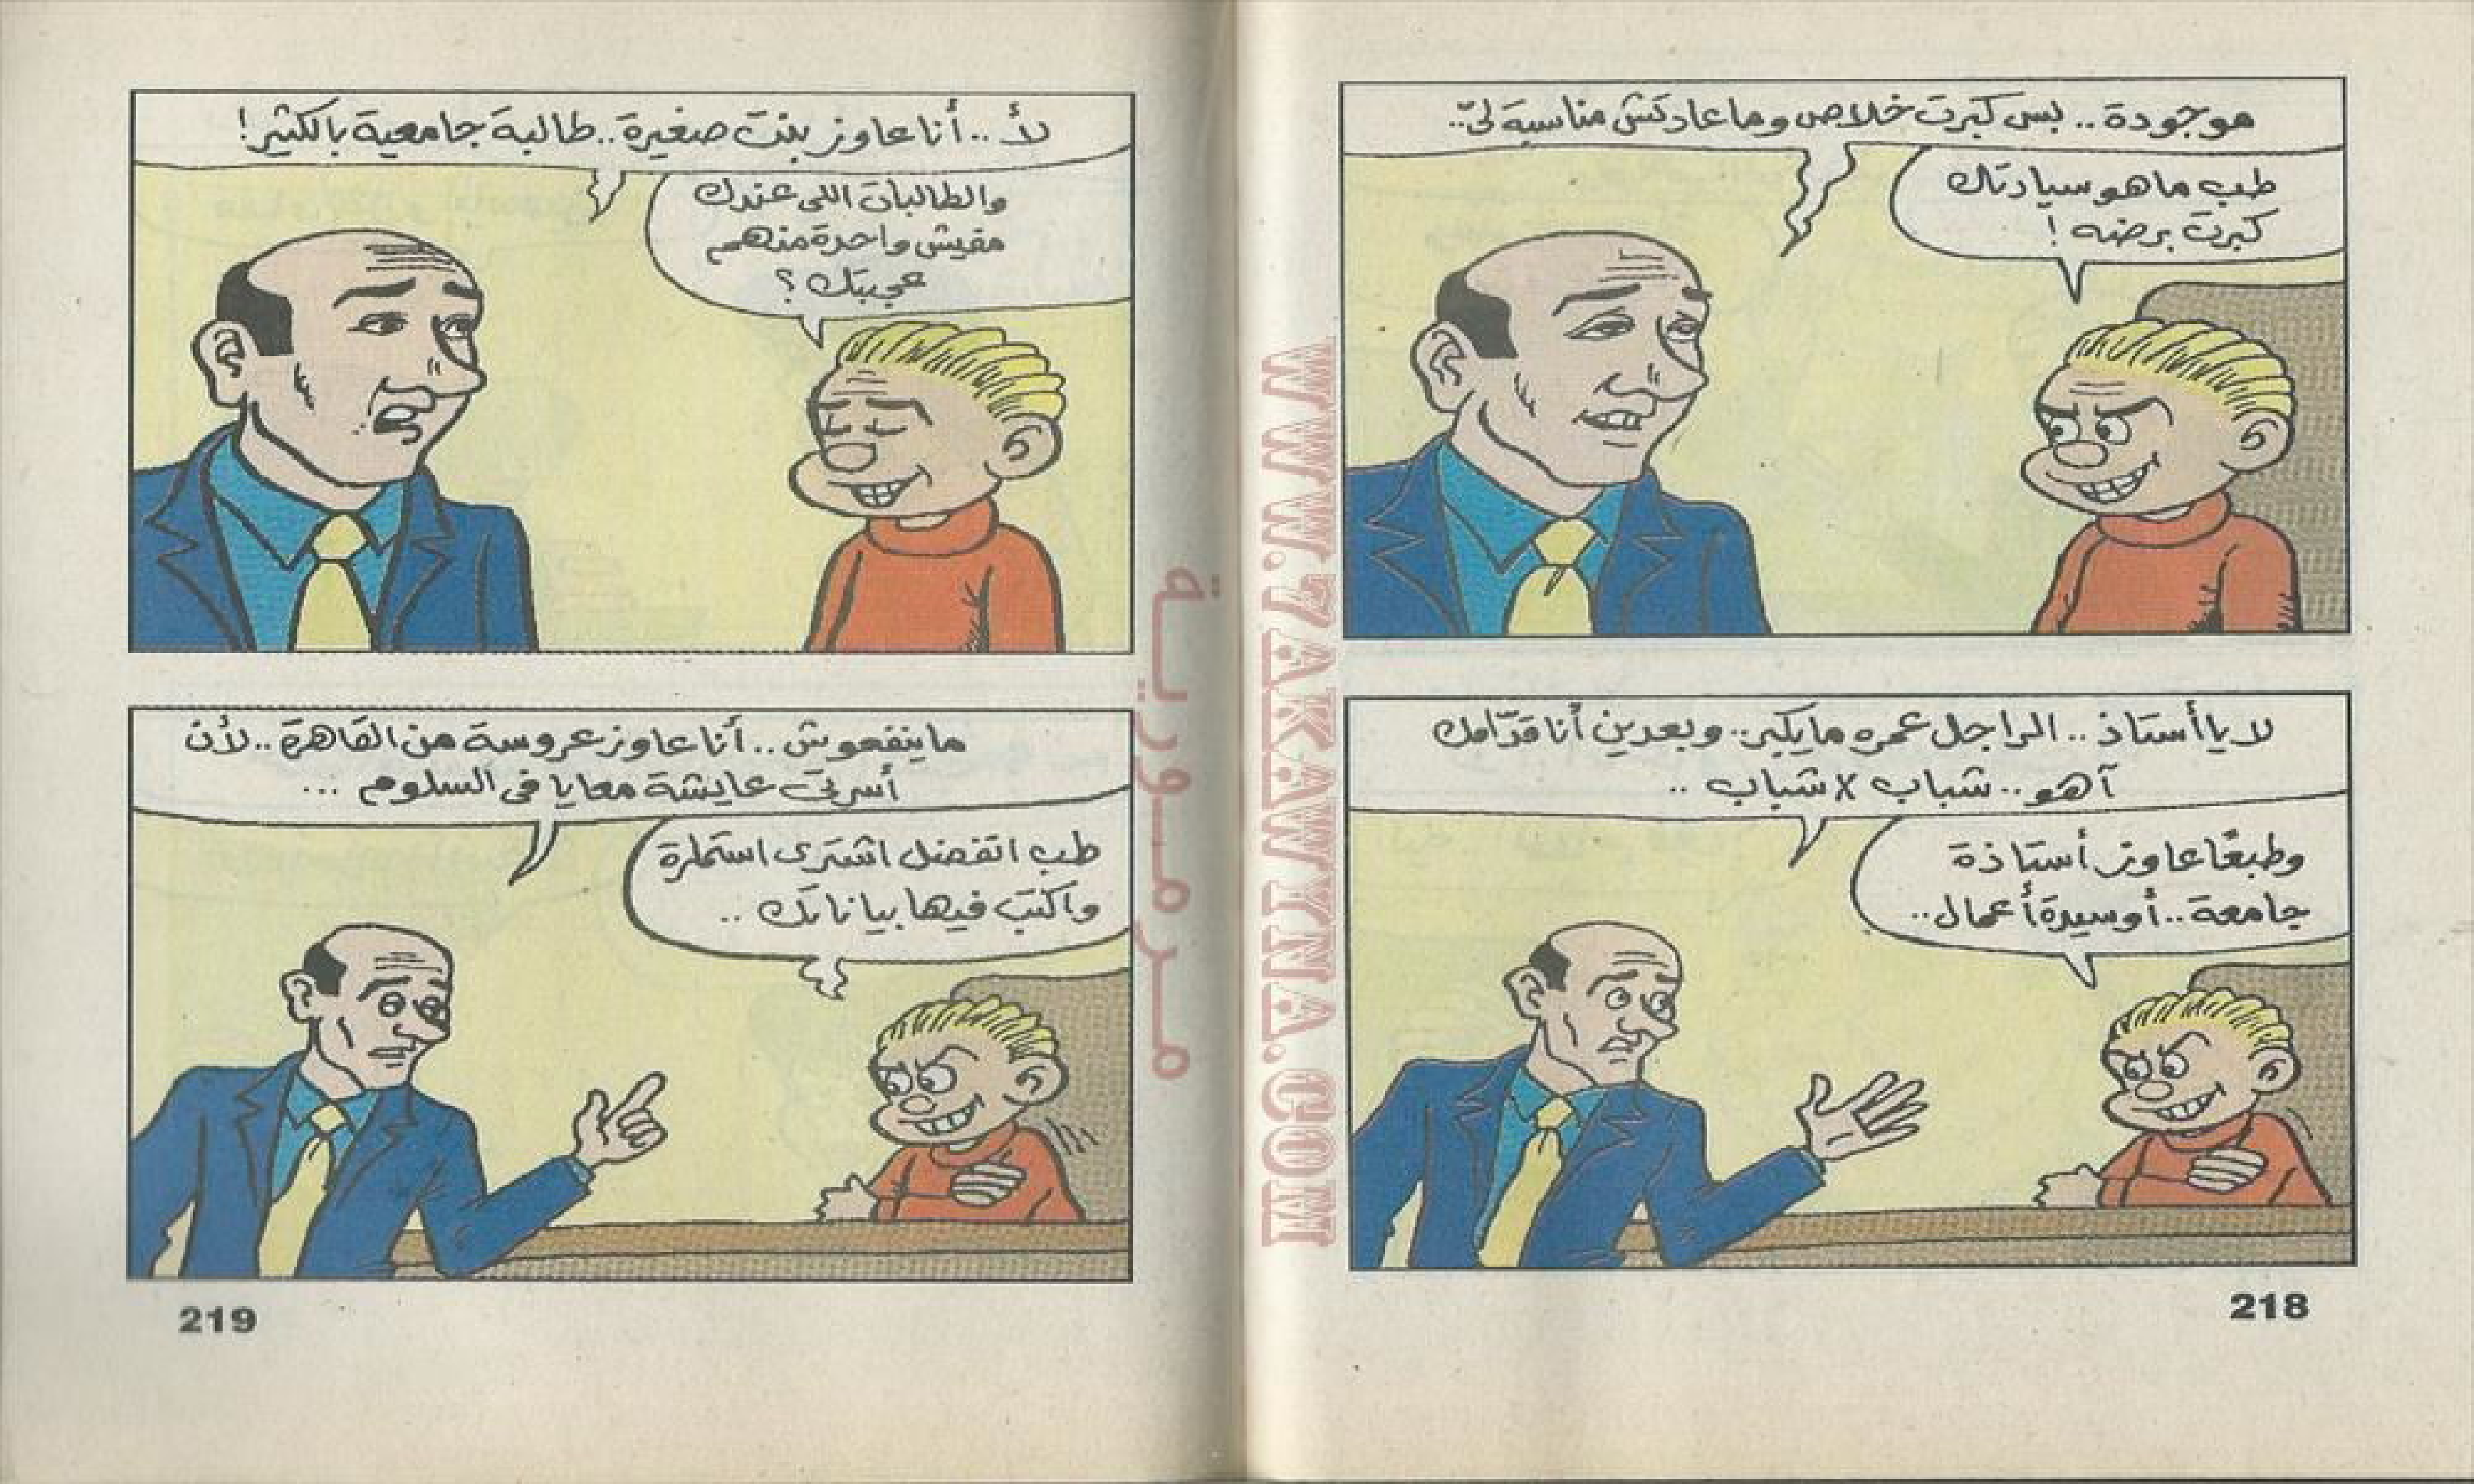 موجودة .. بس كبرت خلاص وما عادتش مناسبة لىّ..
طب ما هو سيادتك
كبرت برضه !
لا يا أستاذ .. الراجل عمره ما يكبر.. وبعدين أنا قدّامك
آهو .. شباب x شباب ..
وطبعًا عاوز أستاذة
جامعة .. أو سيدة أعمال ..
218
لأ .. أنا عاوز بنت صغيرة .. طالبة جامعية بالكتير !
والطالبات اللى عندك
مفيش واحدة منهم
عجبتك ؟
ما ينفعوش .. أنا عاوز عروسة من القاهرة .. لأن
أسرتى عايشة معايا فى السلوم ...
طب اتفضل اشترى استمارة
واكتب فيها بياناتك ..
219
مرمورية
WWW.7AKAWYNA.COM